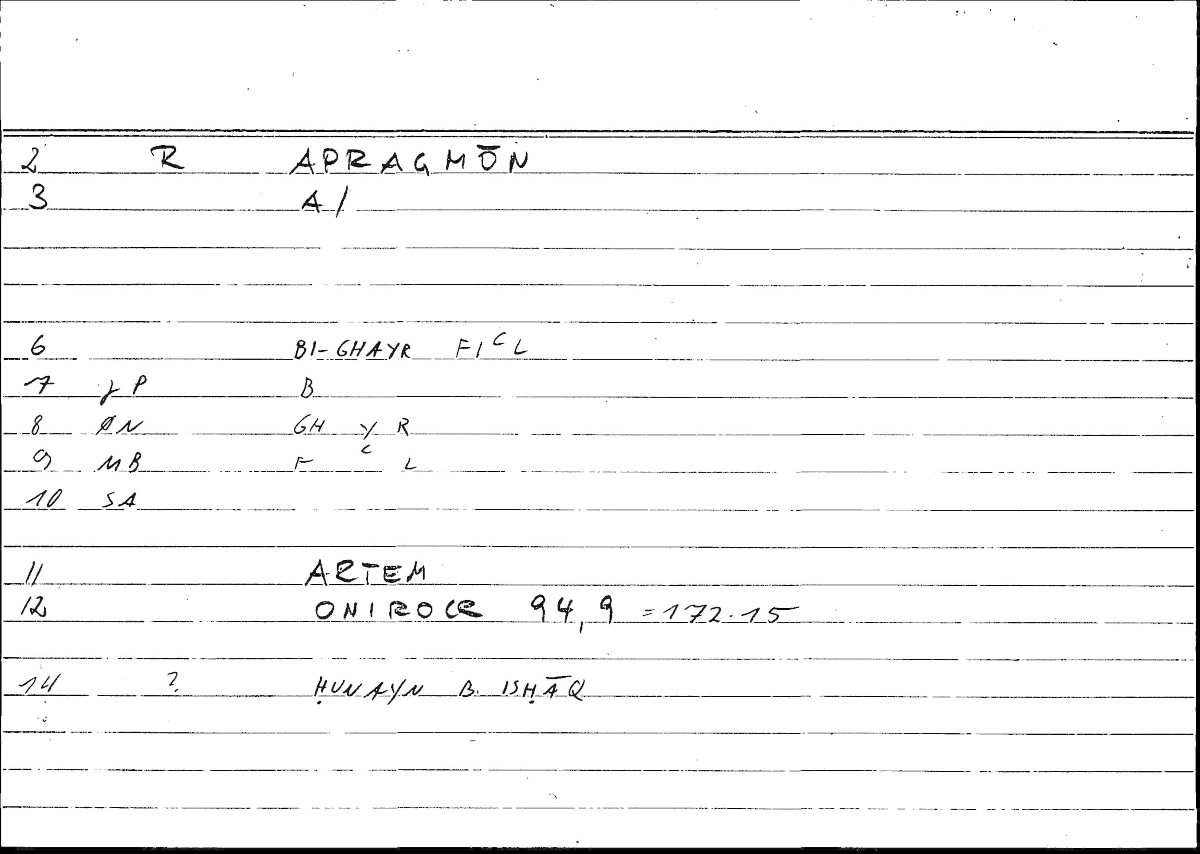 2 R APRAGMŌN
3 A/
6 BI-GHAYR FIᶜL
7 JP B
8 ØN GH Y R
9 MB F ᶜ L
10 SA
11 ARTEM
12 ONIROCR 94,9 =172.15
14 ? ḤUNAYN B. ISḤĀQ